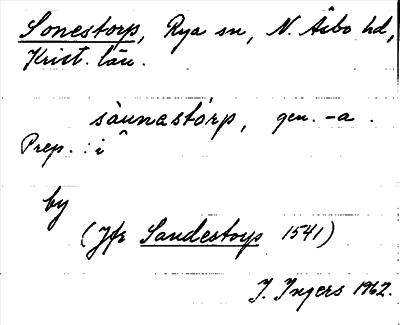 Sonestorp, Rya sn, N. Åsbo hd,
Krist. län.
såunastårp, gen. -a.
Prep. : i
by
(Jfr Sandestorp 1541)
I. Ingers 1962.